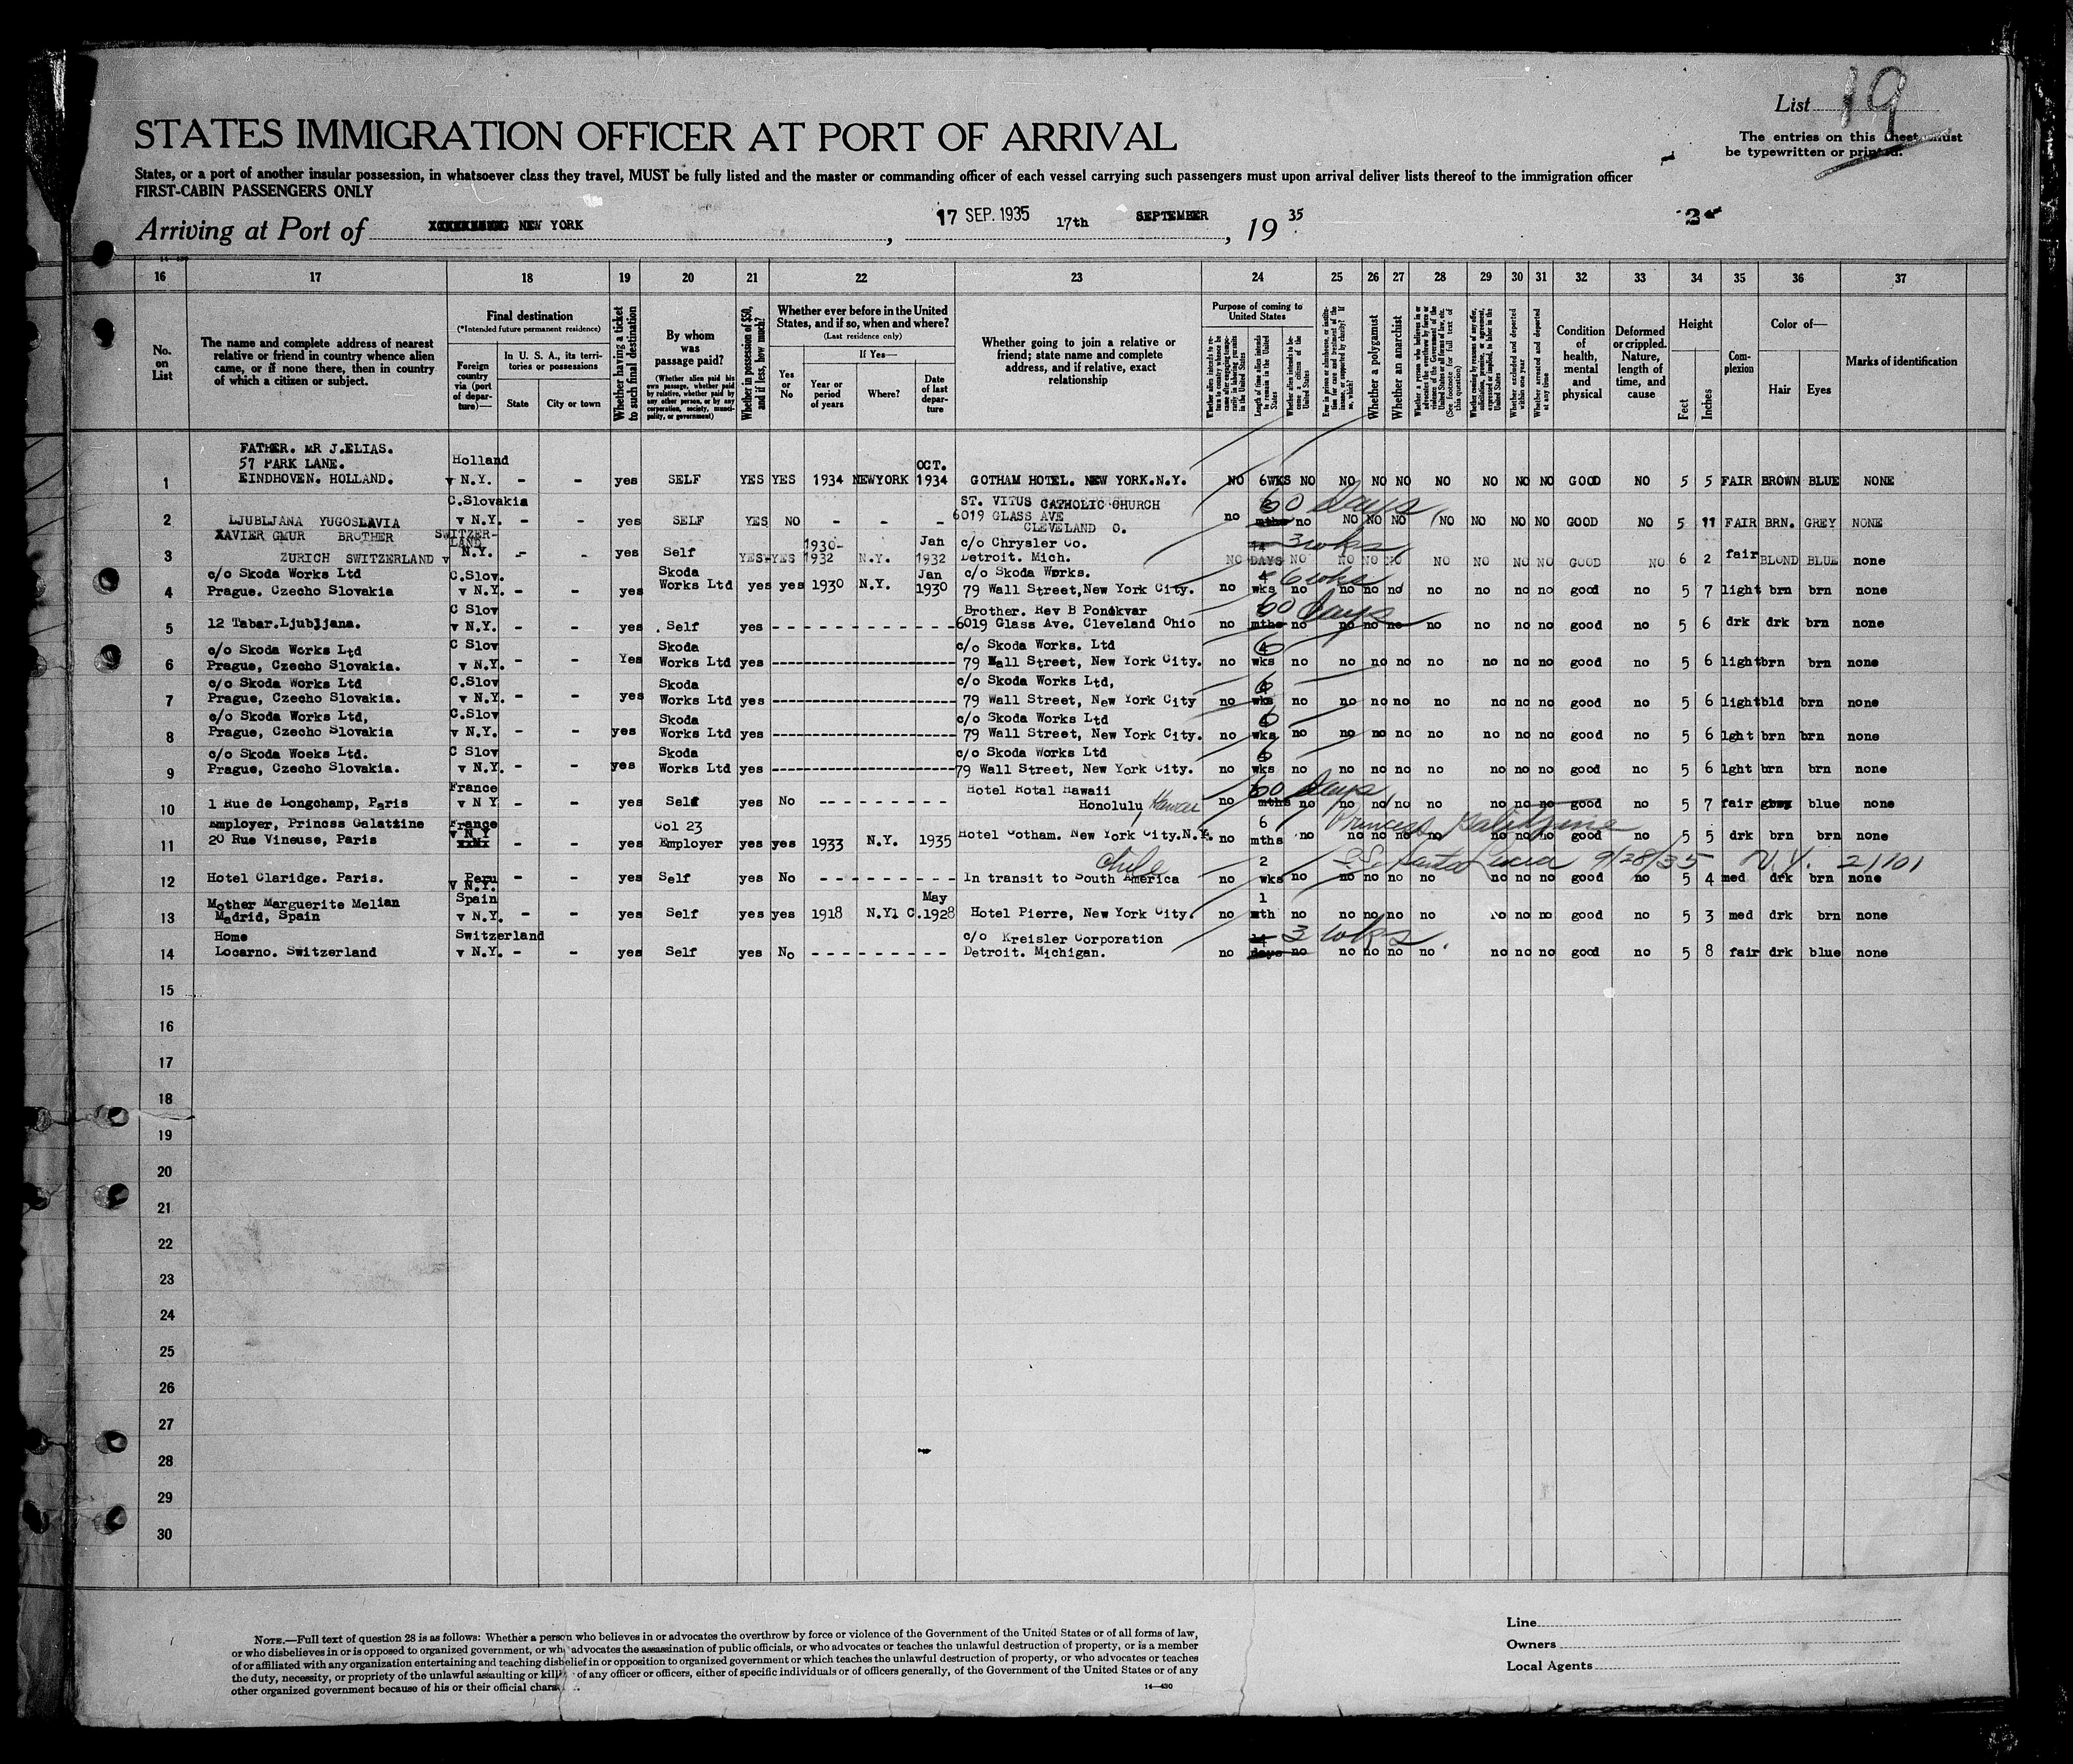 List 19
STATES IMMIGRATION OFFICER AT PORT OF ARRIVAL
The entries on this sheet must
be typewritten or printed.
States, or a port of another insular possession, in whatsoever class they travel, MUST be fully listed and the master or commanding officer of each vessel carrying such passengers must upon arrival deliver lists thereof to the immigration officer
FIRST-CABIN PASSENGERS ONLY
Arriving at Port of NEW YORK, 17 SEP. 1935 17th SEPTEMBER, 19 35
2
16 17 18 19 20 21 22 23 24 25 26 27 28 29 30 31 32 33 34 35 36 37
No. on List
The name and complete address of nearest relative or friend in country whence alien came, or if none there, then in country of which a citizen or subject.
Final destination
(*Intended future permanent residence)
Foreign country via (port of departure)—
In U. S. A., its territories or possessions
State
City or town
Whether having a ticket to such final destination
By whom was passage paid?
(Whether alien paid his own passage, whether paid by relative, whether paid by any other person, or by any corporation, society, municipality, or government)
Whether in possession of $50, and if less, how much?
Whether ever before in the United States, and if so, when and where?
(Last residence only)
Yes or No
If Yes—
Year or period of years
Where?
Date of last departure
Whether going to join a relative or friend; state name and complete address, and if relative, exact relationship
Purpose of coming to United States
Length of time alien intends to remain in the United States
Whether alien intends to become a citizen of the United States
Whether a polygamist
Whether an anarchist
Whether arrested and deported at any time
Condition of health, mental and physical
Deformed or crippled. Nature, length of time, and cause
Height
Feet
Inches
Complexion
Color of—
Hair
Eyes
Marks of identification
FATHER. MR J.ELIAS.
57 PARK LANE. Holland OCT.
1 EINDHOVEN. HOLLAND. v N.Y. - - yes SELF YES YES 1934 NEWYORK 1934 GOTHAM HOTEL. NEW YORK.N.Y. NO 6WKS NO NO NO NO NO NO NO NO GOOD NO 5 5 FAIR BROWN BLUE NONE
C.Slovakia ST. VITUS CATHOLIC CHURCH 60 days
2 LJUBLJANA YUGOSLAVIA v N.Y. - - yes SELF YES NO - - - 6019 GLASS AVE no mths no NO NO NO NO NO NO NO GOOD NO 5 11 FAIR BRN. GREY NONE
CLEVELAND O.
XAVIER GMUR BROTHER SWITZERLAND 1930- Jan c/o Chrysler Co. 14 3 wks
3 ZURICH SWITZERLAND v N.Y. - - yes Self YES YES 1932 N.Y. 1932 Detroit. Mich. NO DAYS NO NO NO NO NO NO NO NO GOOD NO 6 2 fair BLOND BLUE none
c/o Skoda Works Ltd C.Slov. Skoda Jan c/o Skoda Works. 4 6 wks
4 Prague. Czecho Slovakia v N.Y. - - yes Works Ltd yes yes 1930 N.Y. 1930 79 Wall Street,New York City. no wks no no no no no no no no good no 5 7 light brn brn none
C Slov Brother. Rev B Ponikvar 60 days
5 12 Tabar.Ljubljana. v N.Y. - - yes Self yes - - - 6019 Glass Ave. Cleveland Ohio no mths no no no no no no no no good no 5 6 drk drk brn none
c/o Skoda Works Ltd C Slov Skoda c/o Skoda Works. Ltd 6
6 Prague, Czecho Slovakia. v N.Y. - - Yes Works Ltd yes --- 79 Wall Street, New York City. no wks no no no no no no no no good no 5 6 light brn brn none
c/o Skoda Works Ltd C.Slov Skoda c/o Skoda Works Ltd, 6
7 Prague, Czecho Slovakia. v N.Y. - - yes Works Ltd yes --- 79 Wall Street, New York City no wks no no no no no no no no good no 5 6 light bld brn none
c/o Skoda Works Ltd, C.Slov Skoda c/o Skoda Works Ltd 6
8 Prague, Czecho Slovakia v N.Y. - - yes Works Ltd yes --- 79 Wall Street, New York City. no wks no no no no no no no no good no 5 6 lght brn brn none
c/o Skoda Woeks Ltd. C Slov Skoda c/o Skoda Works Ltd 6
9 Prague, Czecho Slovakia. v N.Y. - - yes Works Ltd yes --- 79 Wall Street, New York City. no wks no no no no no no no no good no 5 6 lght brn brn none
France Hotel Rotal Hawaii 60 days
10 1 Rue de Longchamp, Paris v N Y - - yes Self yes No - - - Honolulu, Hawaii no mths no no no no no no no no good no 5 7 fair grey blue none
Employer, Princss Galattine France Col 23 6 Princess Galitzine
11 20 Rue Vineuse, Paris v N Y - - yes Employer yes yes 1933 N.Y. 1935 Hotel Gotham. New York City.N.Y. no mths no no no no no no no no good no 5 5 drk brn brn none
Chile 2 S.S. Santa Lucia 9/28/35 N.Y. 21101
12 Hotel Claridge. Paris. Peru v N.Y. - - yes Self yes No - - - In transit to South America no wks no no no no no no no no good no 5 4 med drk brn none
Mother Marguerite Melian Spain May 1
13 Madrid, Spain v N.Y. - - yes Self yes yes 1918 N.Y. C. 1928 Hotel Pierre, New York City. no mth no no no no no no no no good no 5 3 med drk brn none
Home Switzerland c/o Kreisler Corporation 14 3 wks.
14 Locarno. Switzerland v N.Y. - - yes Self yes No - - - Detroit. Michigan. no days no no no no no no no no good no 5 8 fair drk blue none
15
16
17
18
19
20
21
22
23
24
25
26
27
28
29
30
NOTE.—Full text of question 28 is as follows: Whether a person who believes in or advocates the overthrow by force or violence of the Government of the United States or of all forms of law,
or who disbelieves in or is opposed to organized government, or who advocates the assassination of public officials, or who advocates or teaches the unlawful destruction of property, or is a member
of or affiliated with any organization entertaining and teaching disbelief in or opposition to organized government or which teaches the unlawful destruction of property, or who advocates or teaches
the duty, necessity, or propriety of the unlawful assaulting or killing of any officer or officers, either of specific individuals or of officers generally, of the Government of the United States or of any
other organized government because of his or their official
14—430
Line
Owners
Local Agents